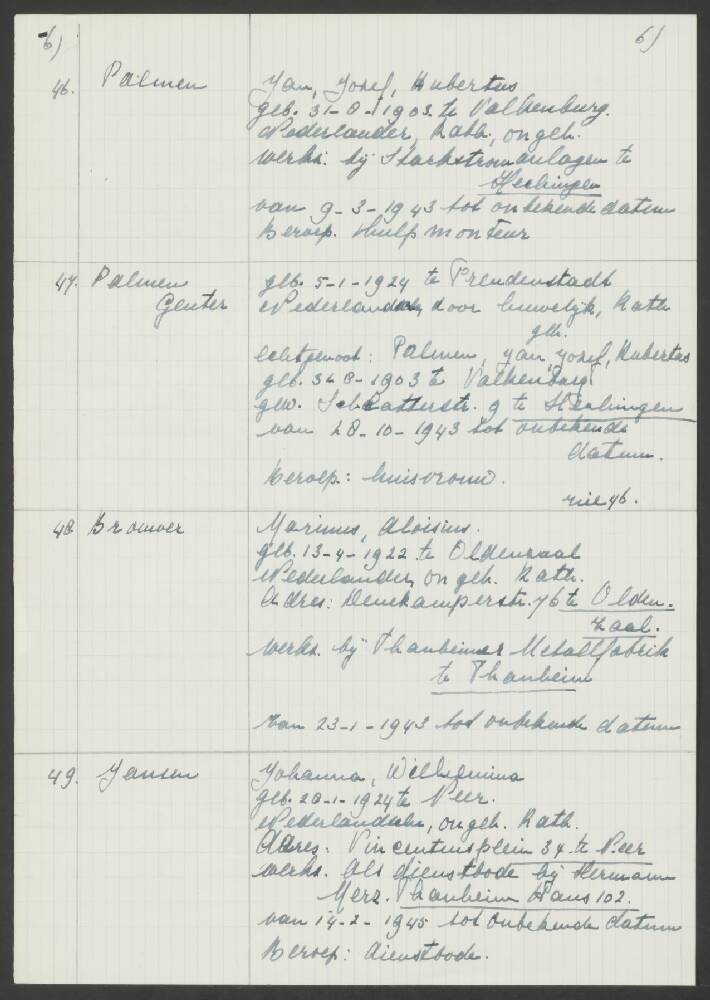 6)
6)
46. Palmen Jan, Jozef, Hubertus
geb. 31-8-1903 te Valkenburg.
Nederlander, Kath., ongeh.
werkz. bij Starkstromanlagen te
Hechingen
van 9-3-1943 tot onbekende datum
Beroep. Hulpmonteur
47. Palmen geb. 5-1-1924 te Freudenstadt
Genter Nederlandsche door huwelijk, Kath
geh.
Echtgenoot: Palmen, Jan, Jozef, Hubertus
geb. 31-8-1903 te Valkenburg
gew. Schlatterstr. 9 te Hechingen
van 28-10-1943 tot onbekende
datum.
Beroep: huisvrouw.
zie 46.
48. Brouwer Marinus, Aloisius.
geb. 13-4-1922 te Oldenzaal
Nederlander, ongeh. Kath.
Adres: Denekamperstr. 76 te Olden-
zaal.
werkz. bij Thanheimer Metallfabrik
te Thanheim
van 23-1-1943 tot onbekende datum
49. Jansen Johanna, Wilhelmina
geb. 20-1-1924 te Neer.
Nederlandsche, ongeh. Kath.
Adres. Vincentiusplein 34 te Neer
werkz. als dienstbode bij Hermann
Merz. Thanheim Haus 102.
van 14-2-1945 tot onbekende datum
Beroep: dienstbode.